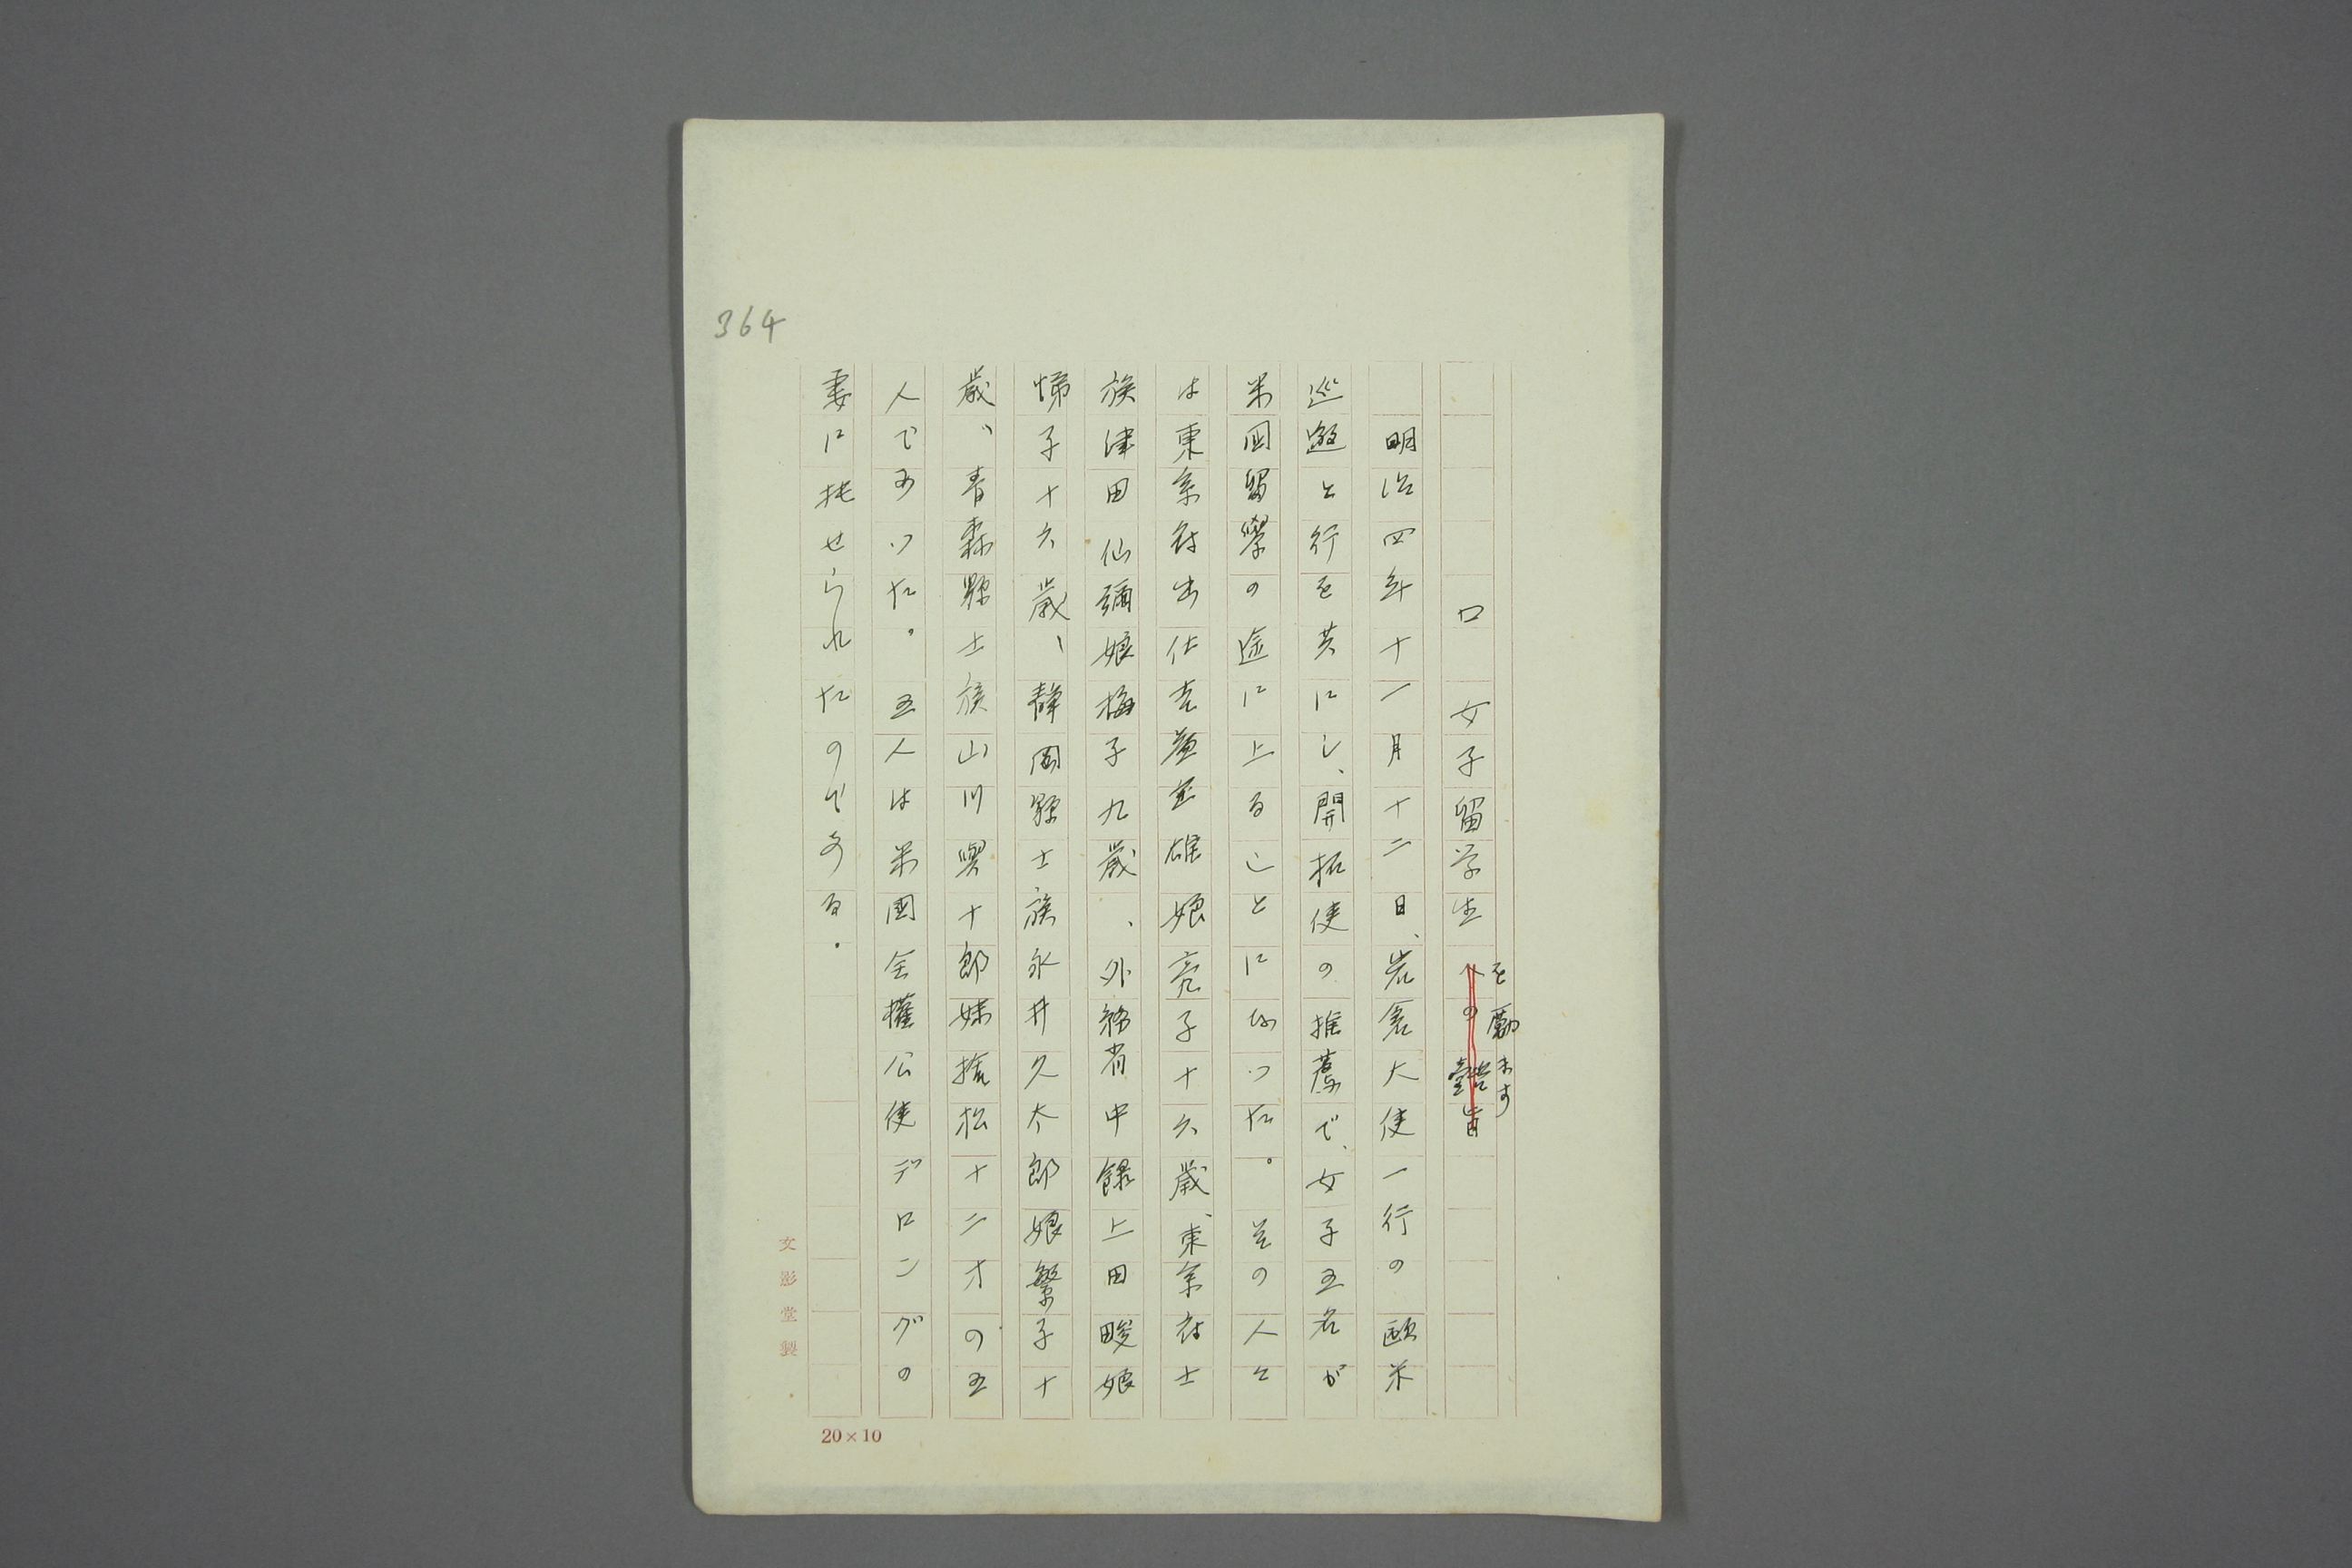 364
ロ 女子留学生への懿旨
を勵ます
明治四年十一月十二日、岩倉大使一行の歐米
巡遊と行を共にし、開拓使の推薦で、女子五名が
米国留學の途に上ることになつた。その人々
は東京府出仕吉益正雄娘亮子十六歳、東京府士
族津田仙彌娘梅子九歳、外務省中録上田畯娘
悌子十六歳、静岡縣士族永井久太郎娘繁子十
歳、青森縣士族山川與十郎妹捨松十二才の五
人であつた。五人は米國全權公使デロングの
妻に托せられたのである。
文影堂製
20×10